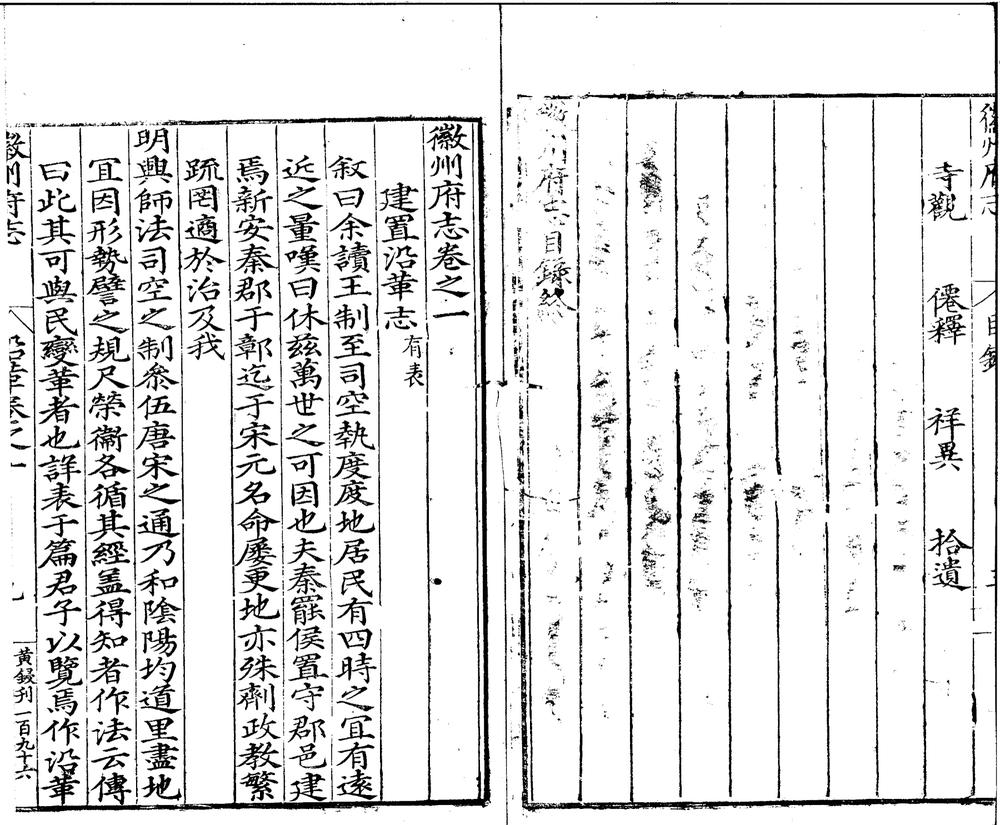 寺觀 僊釋 祥異 拾遺
徽州府志目錄終
徽州府志卷之一
建置沿革志有表
敘曰余讀王制至司空執度度地居民有四時之宜有遠
近之量嘆曰休茲萬世之可因也夫秦罷侯置守郡邑建
焉新安秦郡于鄣迄于宋元名命屢更地亦殊劑政教繁
疏罔適於治及我
明興師法司空之制叅伍唐宋之通乃和陰陽均道里盡地
宜因形勢譬之規尺榮衞各循其經盖得知者作法云傳
曰此其可與民變革者也詳表于篇君子以覽焉作沿革
徽州府志 沿革卷之一
黃鋟刊一百九十六